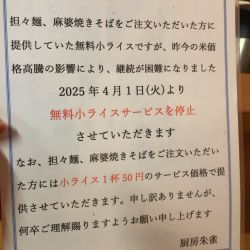 担々麺、麻婆焼きそばをご注文いただいた方に
提供していた無料小ライスですが、昨今の米価
格高騰の影響により、継続が困難になりました
2025年4月1日(火)より
無料小ライスサービスを停止
させていただきます
なお、担々麺、麻婆焼きそばをご注文いただい
た方には小ライス1杯50円のサービス価格で提
供させていただきます。申し訳ありませんが、
何卒ご理解賜りますようお願い申し上げます
厨房朱雀